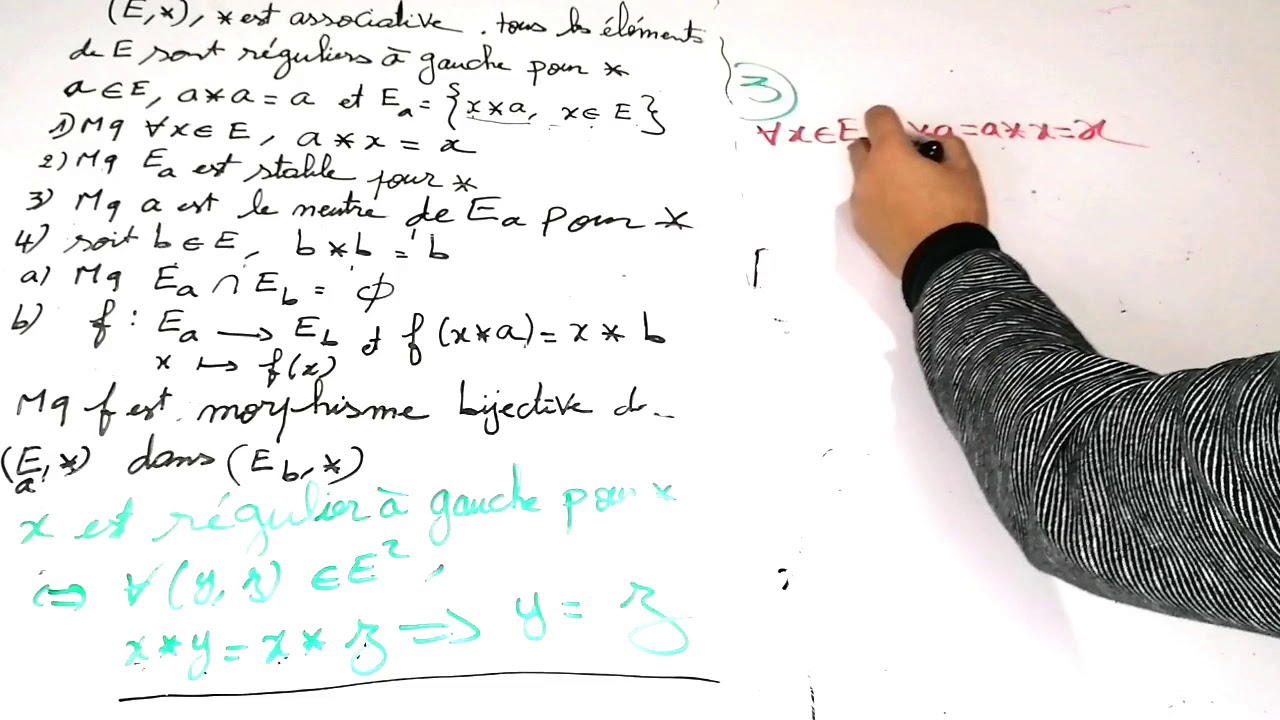 (E,*), * est associative. tous les éléments
de E sont réguliers à gauche pour *
a ∈ E, a * a = a et E_a = {x * a, x ∈ E}
1) Mq ∀x ∈ E, a * x = x
2) Mq E_a est stable pour *
3) Mq a est le neutre de E_a pour *
4) soit b ∈ E, b * b = b
a) Mq E_a ∩ E_b = ∅
b) f : E_a → E_b et f(x * a) = x * b
x ↦ f(x)
Mq f est morphisme bijective de
(E_a, *) dans (E_b, *)
x est régulier à gauche pour *
⇔ ∀(y, z) ∈ E²,
x * y = x * z ⇒ y = z
3
∀x ∈ E * a = a * x = x